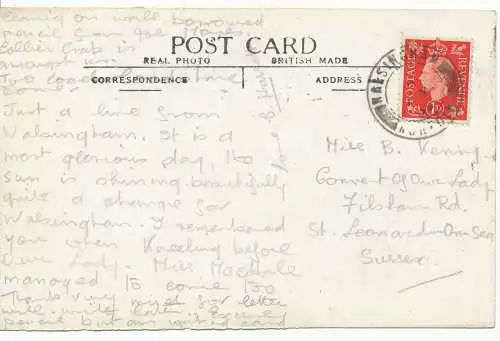 leaning on wall borrowed
pencil from
Collier Crab is
amongst us
Two coach
come.
POST CARD
REAL PHOTO
BRITISH MADE
CORRESPONDENCE
ADDRESS
POSTAGE
REVENUE
1D
Just a line from
Walsingham. It is a
most glorious day, the
sun is shining beautifully
quite a change for
Walsingham. I remembered
you when kneeling before
Our Lady. Miss
managed to come too
Thanks very much for letter
will write later. Excuse
pencil but am
Miss B.
Convent Of Our Lady
Filsham Rd.
St. Leonards-on-Sea
Sussex.